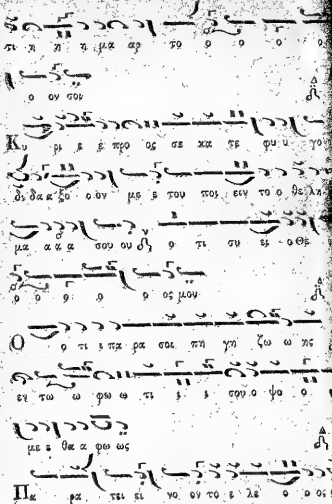 ο ον σοι
Κυ ρι ε ε προ ος σε κα τε φυ υ γον
δι δα α ξο ο ον με ε του ποι ειν το ο θε λη
μα α α α σου ου ο τι συ ει ο Θε
ο ο ο ο ος μου
Ο ο τι ι πα ρα σοι πη γη ζω ω ης
εν τω ω φω ω τι ι ι σου ο ψο ο
με ε θα α φω ως
Πα ρα τει ει νο ον το ο ε λε ο ο